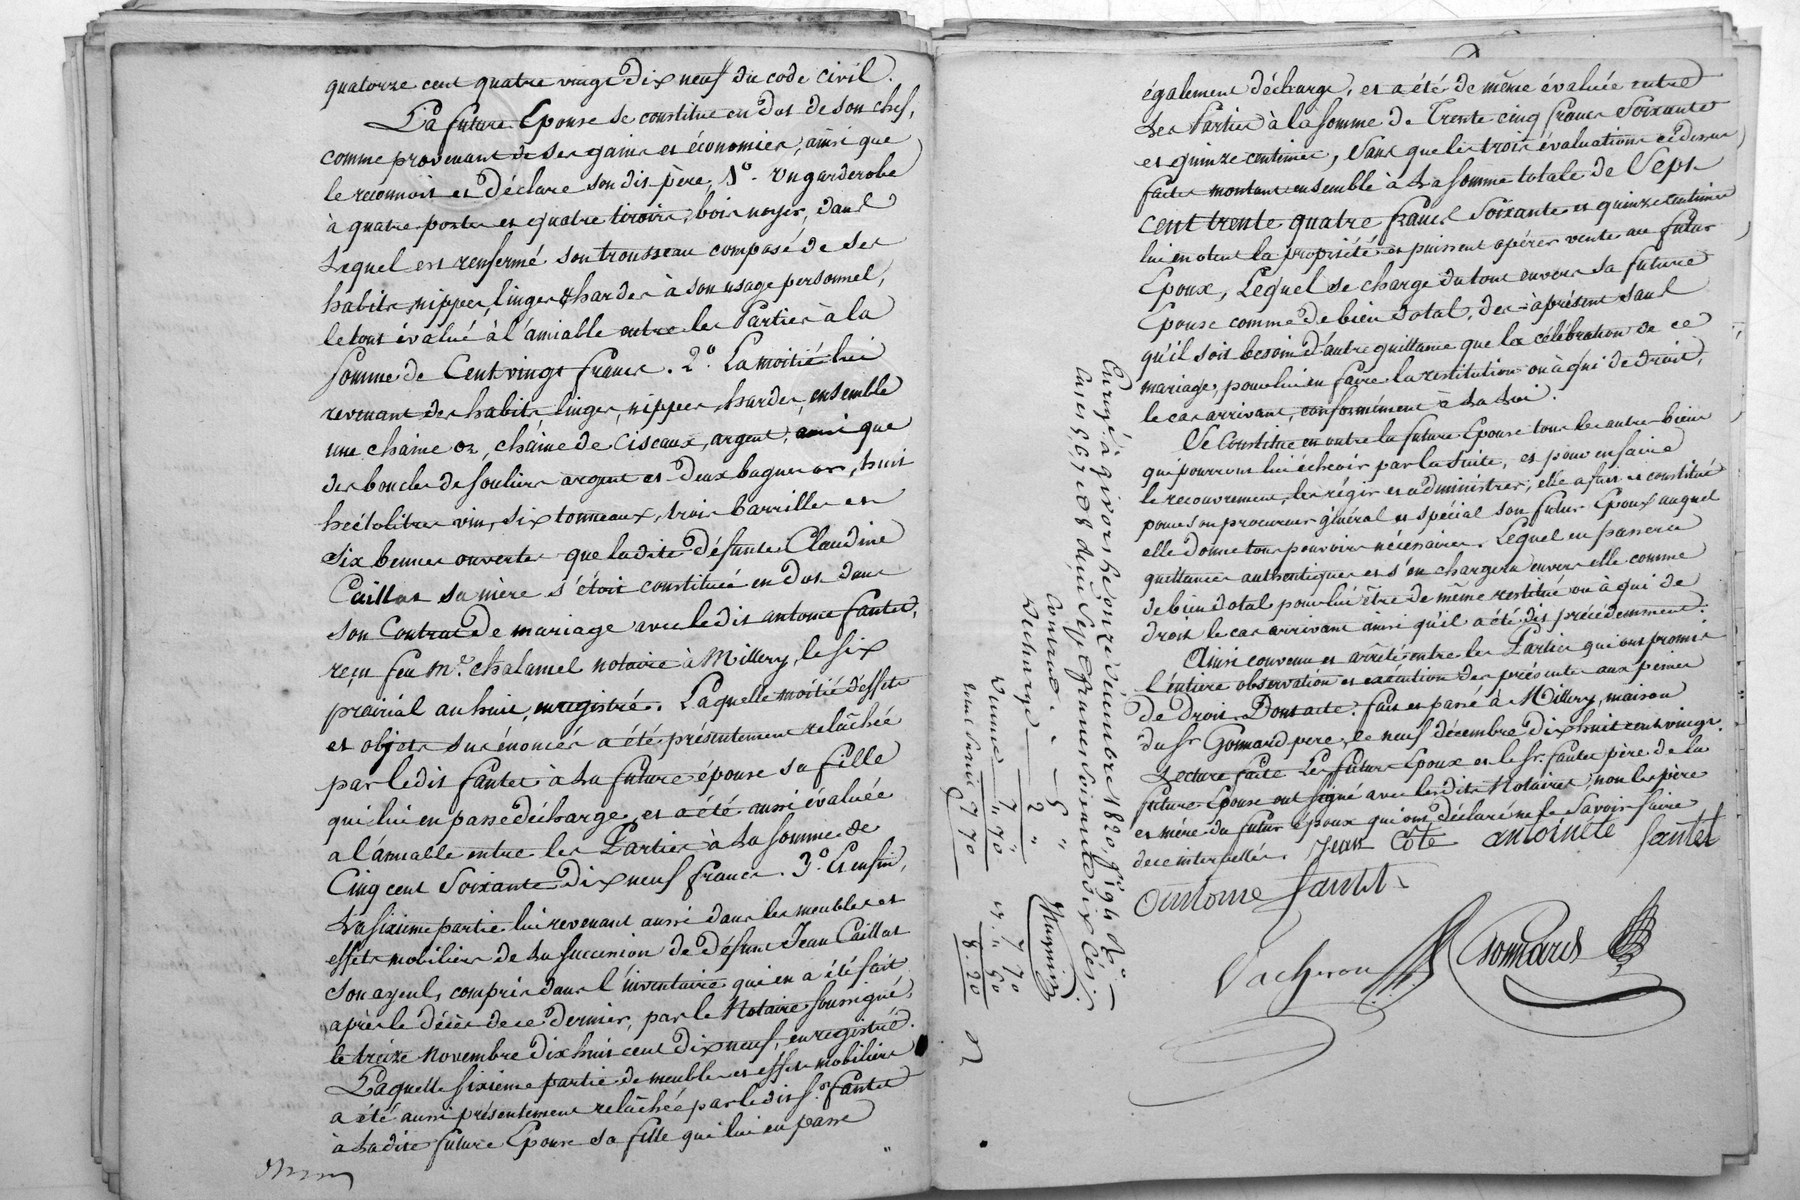 quatorze cent quatre vingt dix neuf du code civil.
La future Epouse se constitue en dot de son chef,
comme provenant de ses gains et économies, ainsi que
le reconnoit et déclare son dit père, 1°. Un garderobe
à quatre portes et quatre tiroirs, bois noyer, dans
lequel est renfermé son trousseau composé de ses
habits, nippes, linges & hardes à son usage personnel,
le tout évalué à l'amiable entre les Parties à la
somme de Cent vingt francs. 2°. La moitié lui
revenant des habits, linges, nippes, hardes, ensemble
une chaine or, chaine de ciseaux, argent, ainsi que
des boucles de souliers argent et deux bagues or, huit
hectolitres vin, six tonneaux, trois barrilles et
six bennes ouvertes que ladite défunte Claudine
Caillat sa mère s'étoit constituée en dot dans
son Contrat de mariage avec ledit antoine fautet,
reçu feu Me. Chalamel notaire à Millery, le six
prairial an huit, enregistré. Laquelle moitié d'effets
et objets sus énoncés a été présentement relâchée
par ledit fautet à la future épouse sa fille
qui lui en passe décharge, et a été aussi évaluée
a l'amiable entre les Parties à la somme de
Cinq cent soixante dix neuf francs. 3°. Et enfin,
La sixième partie lui revenant aussi dans les meubles et
effets mobiliers de la succession de défunt Jean Caillat
son ayeul, compris dans l'inventaire qui en a été fait
après le décès de ce dernier, par le Notaire soussigné,
le treize Novembre dix huit cent dix neuf, enregistré.
Laquelle sixième partie de meubles et effets mobiliers
a été aussi présentement relâchée par ledit Sr. fautet
à la dite future Epouse sa fille qui lui en passe
également décharge, et a été de même évaluée entre
Les Parties à la somme de Trente cinq francs Soixante
et quinze centimes, Sans que les trois évaluations ci dessus
faites montant ensemble à la somme totale de Sept
cent trente quatre francs soixante et quinze centimes
lui en otent la propriété et puissent opérer vente au futur
Epoux, Lequel se charge du tout envers sa future
Epouse comme de bien dotal, dès à présent sans
qu'il soit besoin d'autre quittance que la célébration de ce
mariage, pour lui en faire la restitution ou à qui de droit,
le cas arrivant, conformément à la Loi.
Se Constitue en outre la future Epouse tous les autres biens
qui pourront lui échéoir par la suite, et pour en faire
le recouvrement, les régir et administrer, elle a fait et constitué
pour son procureur général et spécial son futur Epoux auquel
elle donne tous pouvoirs nécessaires. Lequel en passera
quittances authentiques et s'en chargera envers elle comme
de bien dotal pour lui être de même restitué ou à qui de
droit le cas arrivant ainsi qu'il a été dit précédemment.
Ainsi convenu et arrêté entre les Parties qui ont promis
l'entière observation et exécution des présentes aux peines
de Droit. Dont acte. fait et passé à Millery, maison
du Sr. Gonnard père, le neuf décembre dix huit cent vingt.
Lecture faite Les futurs Epoux et le Sr. fautet père de la
future Epouse ont signé avec lesdits Notaires, non les père
et mère du futur époux qui ont déclaré ne le Savoir faire
de ce interpellés. Jean Côte antoinete fautet
Antoine fautet
Vacheron Gonnard
Enregé. à givors le onze décembre 1820, fo. 94 Ro.
cases 5, 6, 7 et 8 dû sept francs soixante dix ces.
Contrat . . - 5 "
Décharge - 2 "
7 "
Dixme " 70
7 70
7 70
" 50
8.20